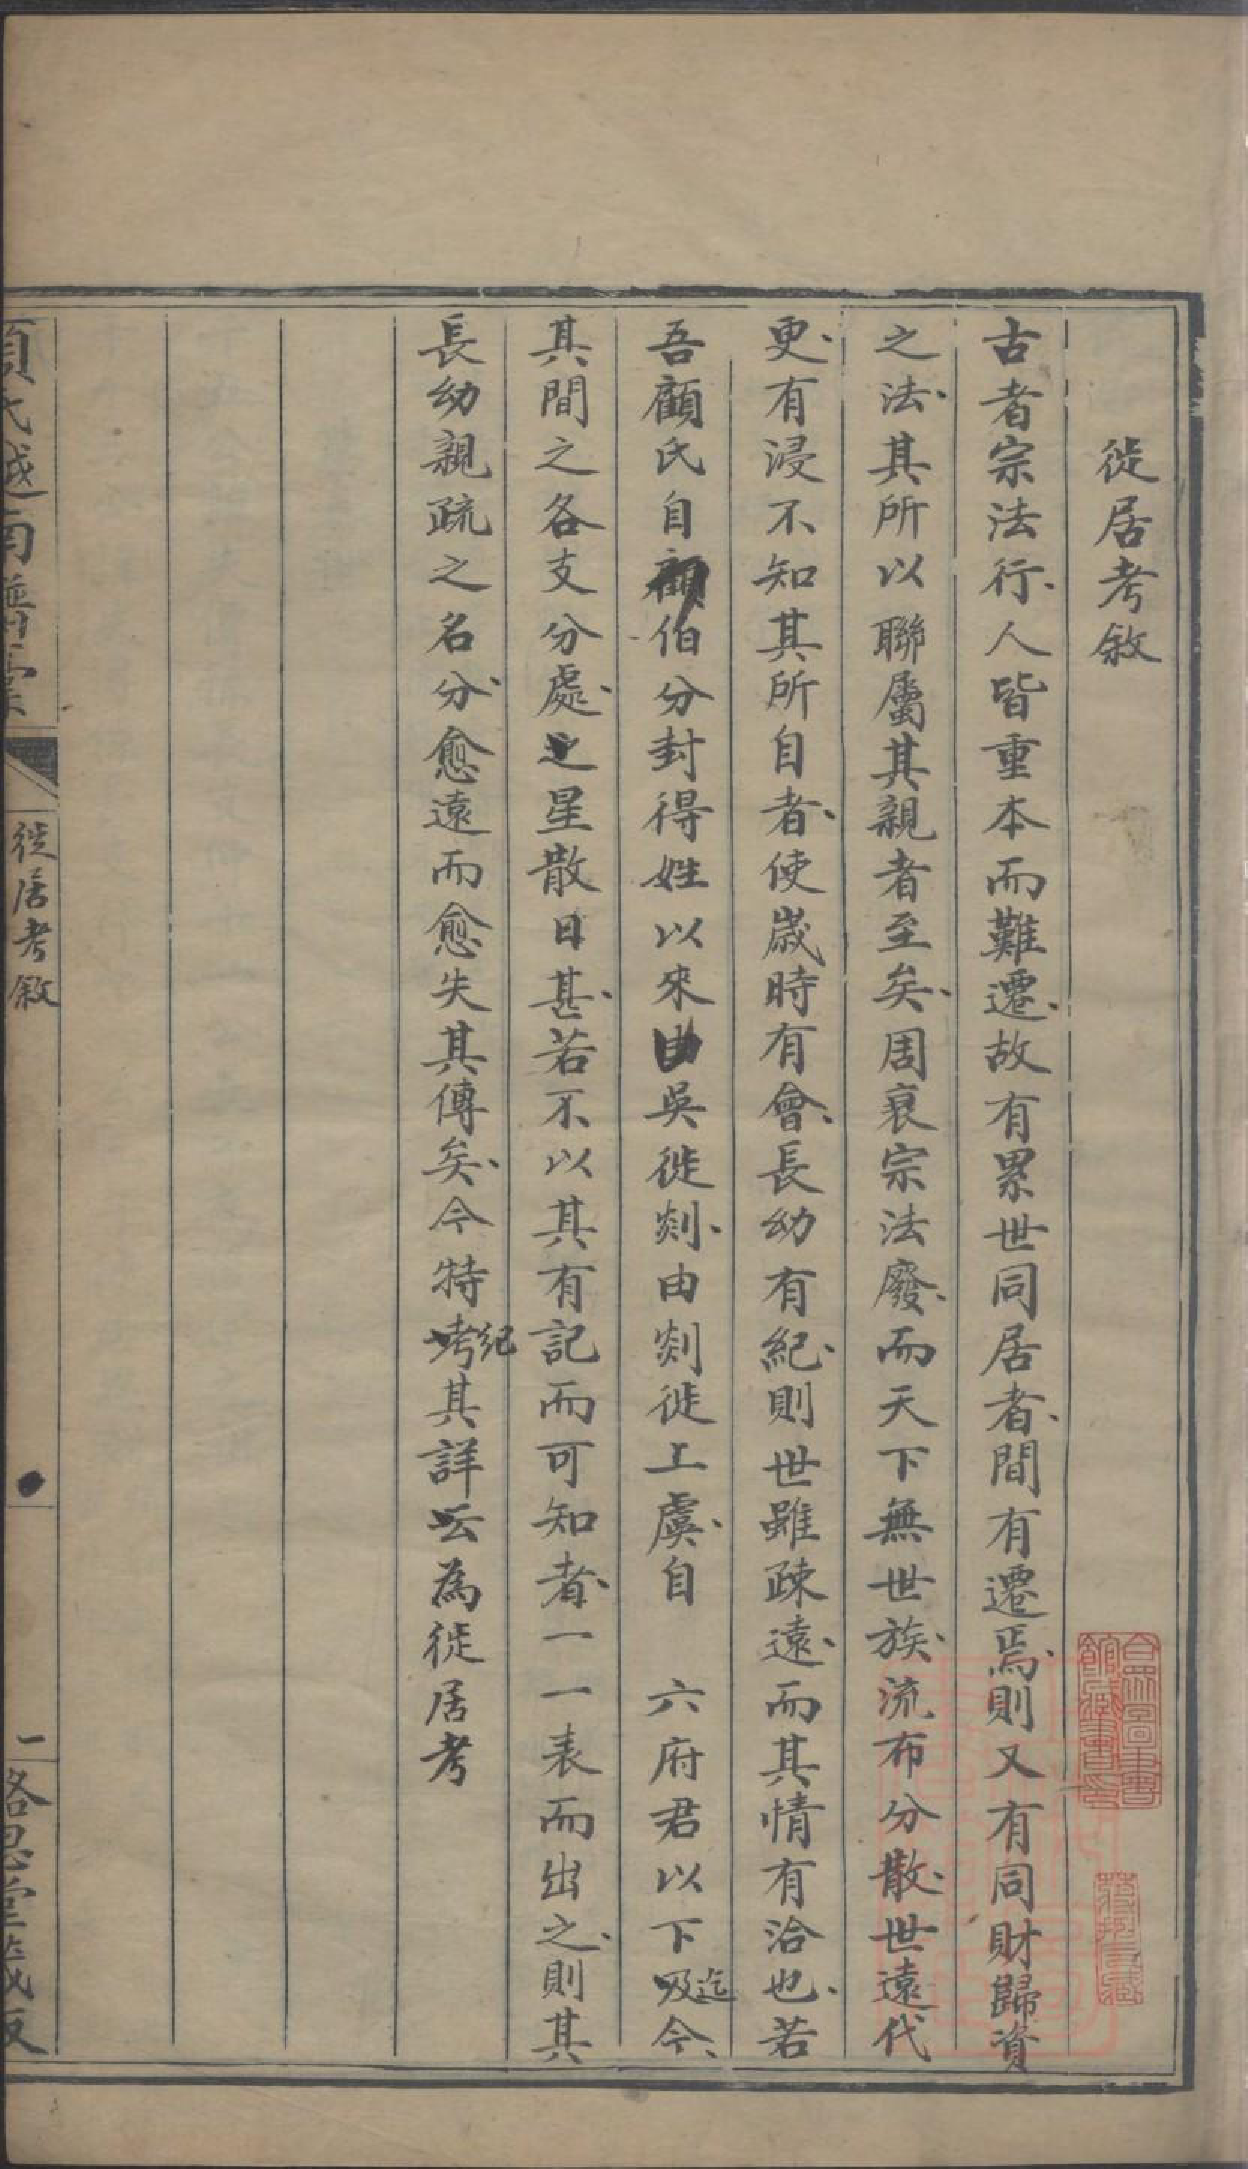 徙居考敘
古者宗法行、人皆重本而難遷、故有累世同居者、間有遷焉、則又有同財歸資
之法、其所以聯屬其親者至矣、周衰宗法廢、而天下無世族、流布分散、世遠代
更、有浸不知其所自者、使歲時有會、長幼有紀、則世雖疎遠、而其情有洽也、若
吾顧氏自顧伯分封得姓以來由吳徙剡、由剡徙上虞、自　六府君以下及迄今、
其間之各支分處、之星散日甚、若不以其有記而可知者、一一表而出之、則其
長幼親疏之名分、愈遠而愈失其傳矣、今特考紀其詳云為徙居考
顧氏越南譜彙
徙居考敘
一
恪思堂藏板